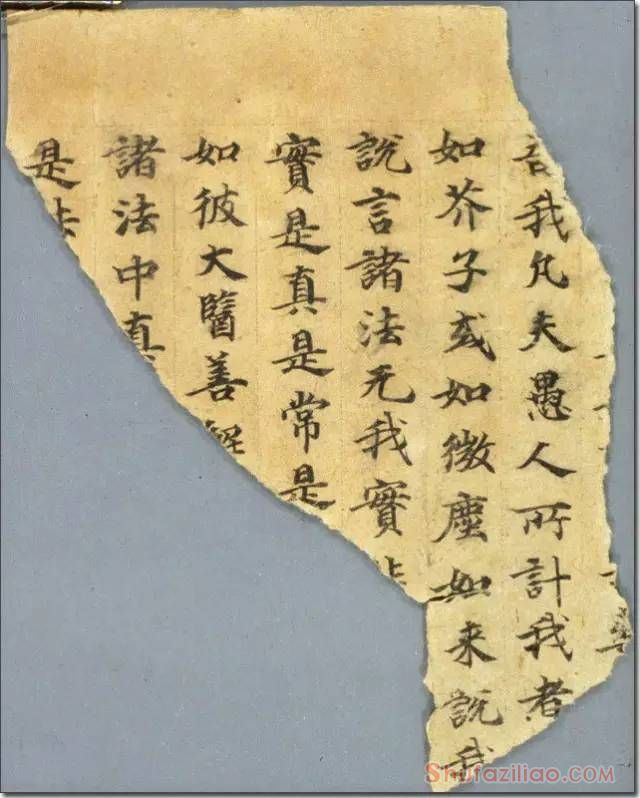 我凡夫愚人所計我者
如芥子或如微塵如来說我
說言諸法无我實
實是真是常是
如彼大醫善解
諸法中真
是法
Shufaziliao.COM